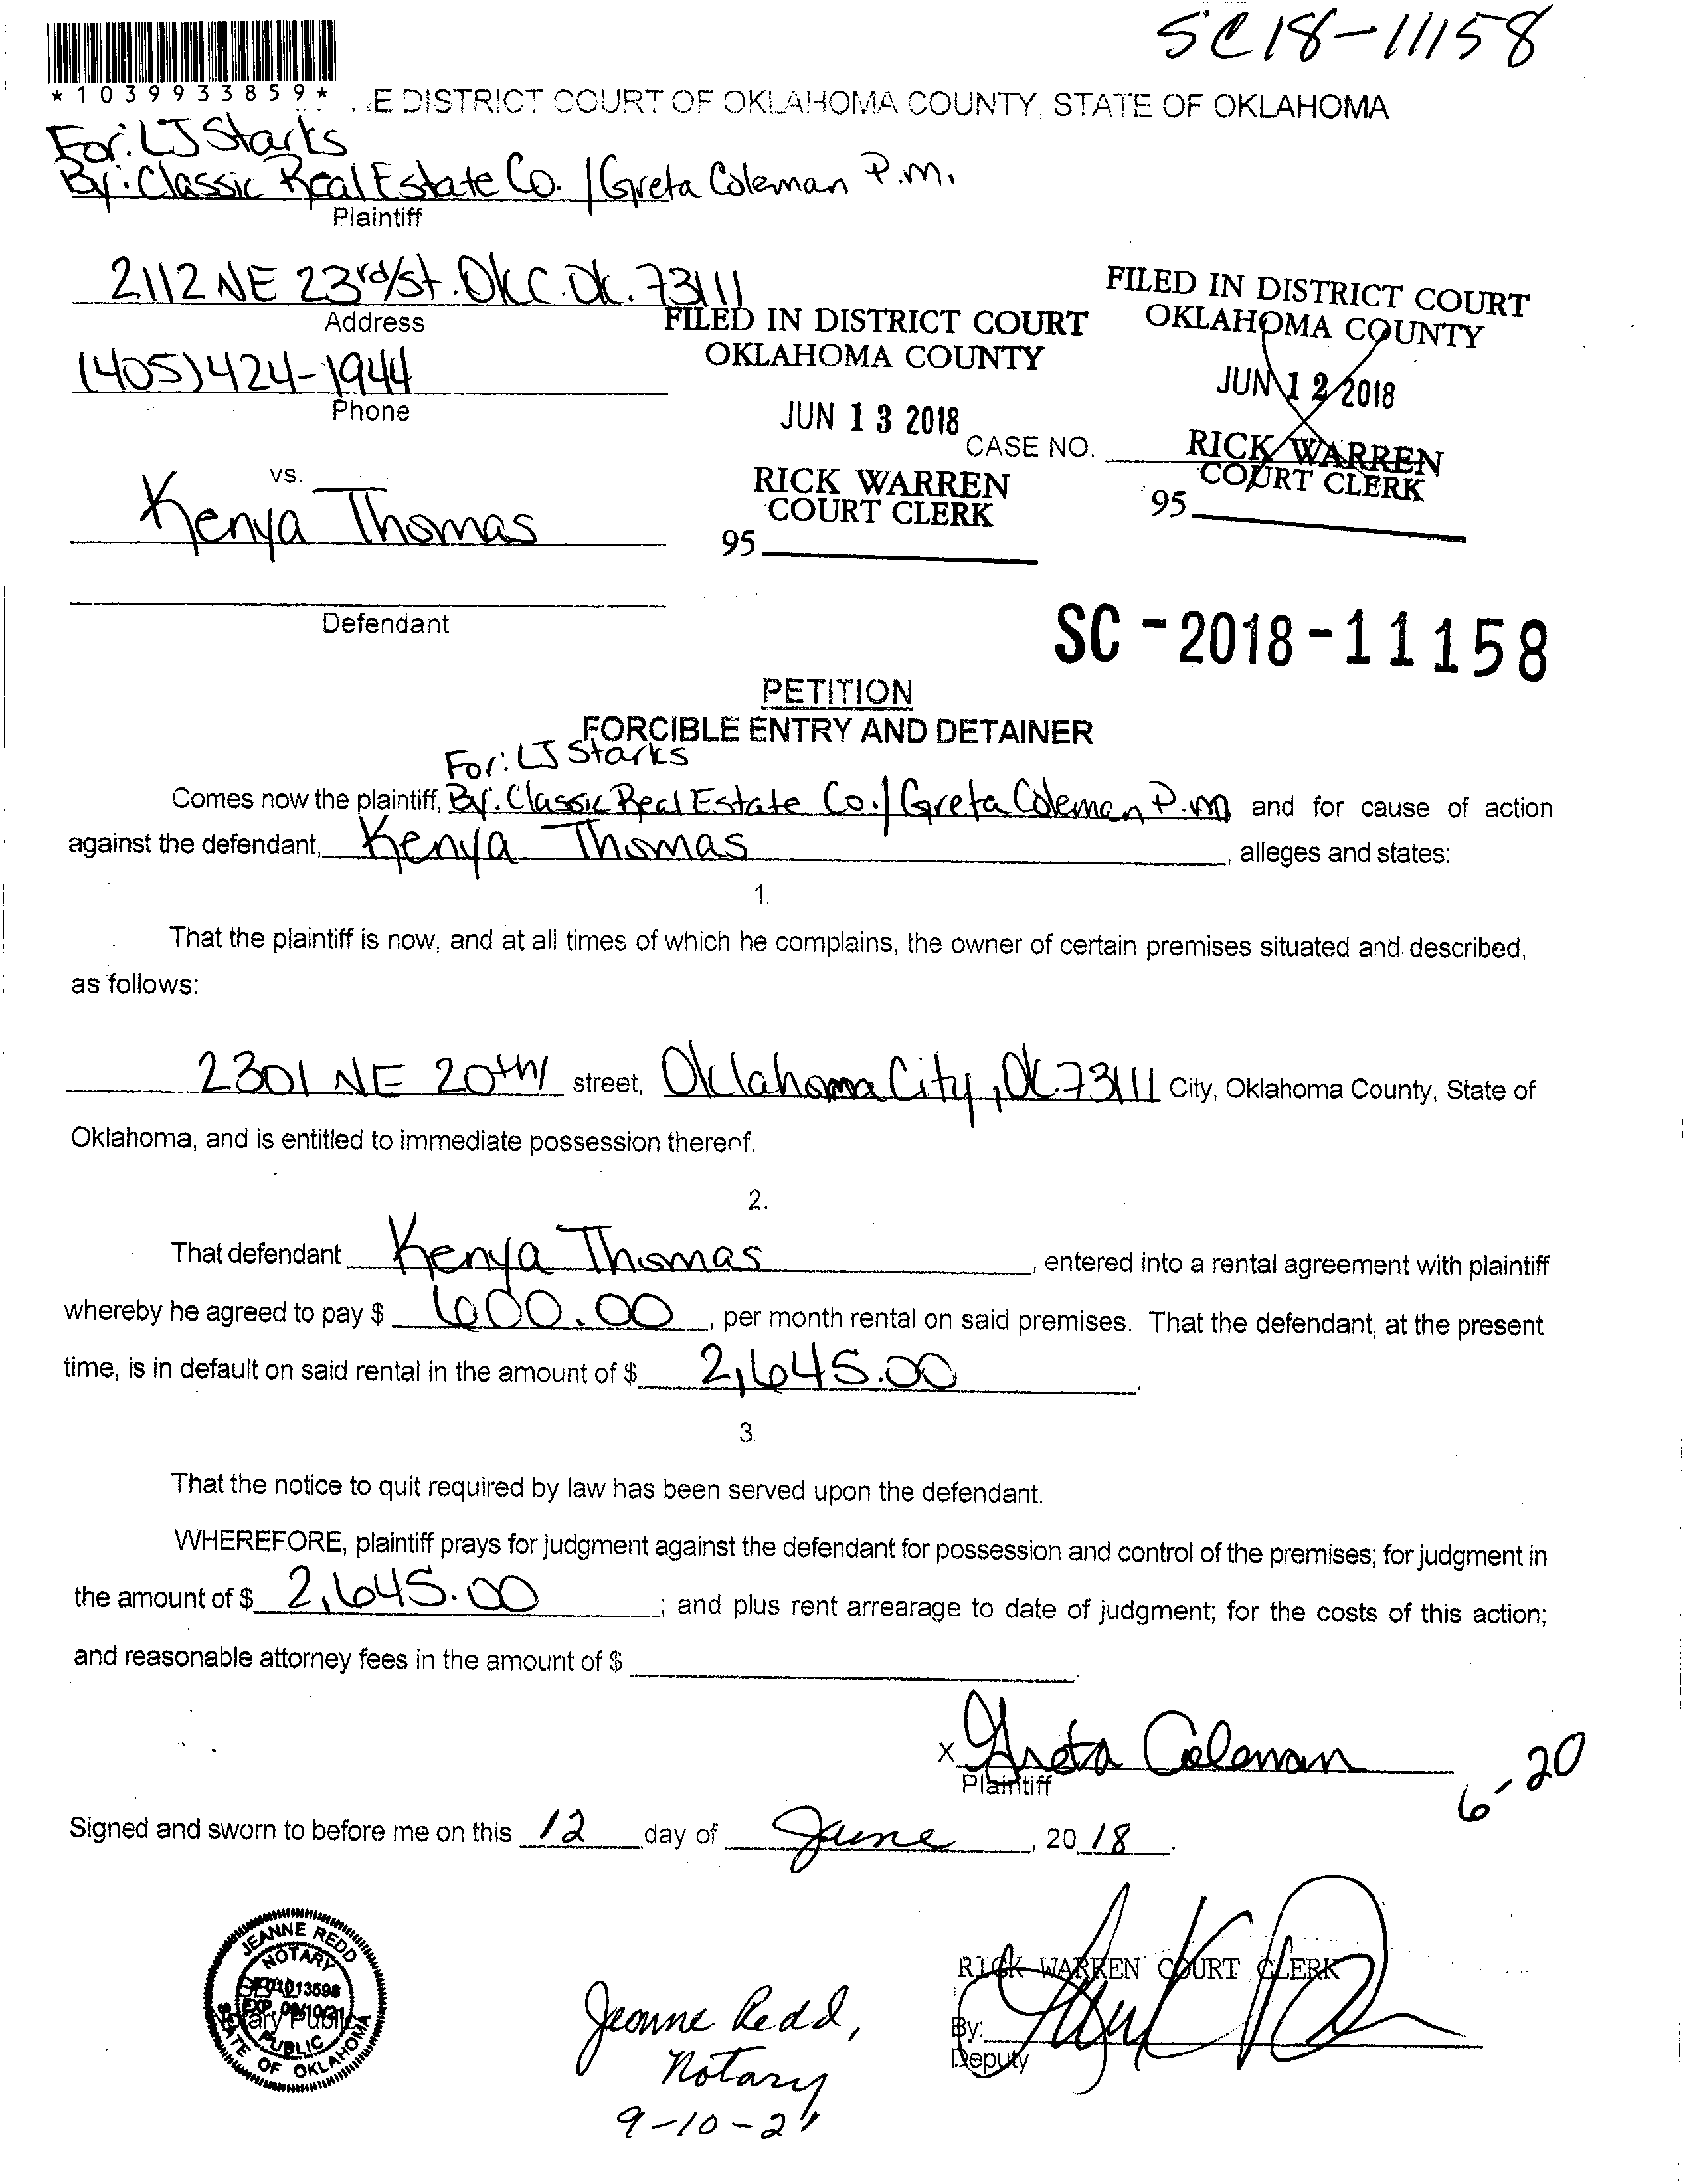 SC18-11158
*1039933859*
.E DISTRICT COURT OF OKLAHOMA COUNTY, STATE OF OKLAHOMA
For: LJ Starks
By: Classic Real Estate Co. / Greta Coleman P.m.
Plaintiff
2112 NE 23rd/st. OKC. Ok. 73111
Address
(405) 424-1944
Phone
FILED IN DISTRICT COURT
OKLAHOMA COUNTY
JUN 13 2018
RICK WARREN
COURT CLERK
95
FILED IN DISTRICT COURT
OKLAHOMA COUNTY
JUN 12 2018
RICK WARREN
COURT CLERK
95
CASE NO.
vs.
Kenya Thomas
Defendant
SC-2018-11158
PETITION
FORCIBLE ENTRY AND DETAINER
For: LJ Starks
Comes now the plaintiff, By: Classic Real Estate Co. / Greta Coleman P.m and for cause of action
against the defendant, Kenya Thomas, alleges and states:
1.
That the plaintiff is now, and at all times of which he complains, the owner of certain premises situated and described,
as follows:
2301 NE 20th/ street, Oklahoma City, Ok. 73111 City, Oklahoma County, State of
Oklahoma, and is entitled to immediate possession thereof.
2.
That defendant Kenya Thomas, entered into a rental agreement with plaintiff
whereby he agreed to pay $ 600.00, per month rental on said premises. That the defendant, at the present
time, is in default on said rental in the amount of $ 2,645.00.
3.
That the notice to quit required by law has been served upon the defendant.
WHEREFORE, plaintiff prays for judgment against the defendant for possession and control of the premises; for judgment in
the amount of $ 2,645.00; and plus rent arrearage to date of judgment; for the costs of this action;
and reasonable attorney fees in the amount of $
x Greta Coleman
Plaintiff
6-20
Signed and sworn to before me on this 12 day of June, 2018.
JEANNE REDD
NOTARY
01013598
EXP. 09/10/21
PUBLIC
STATE OF OKLAHOMA
Notary Public
Jeanne Redd,
Notary
9-10-21
RICK WARREN COURT CLERK
By:
Deputy